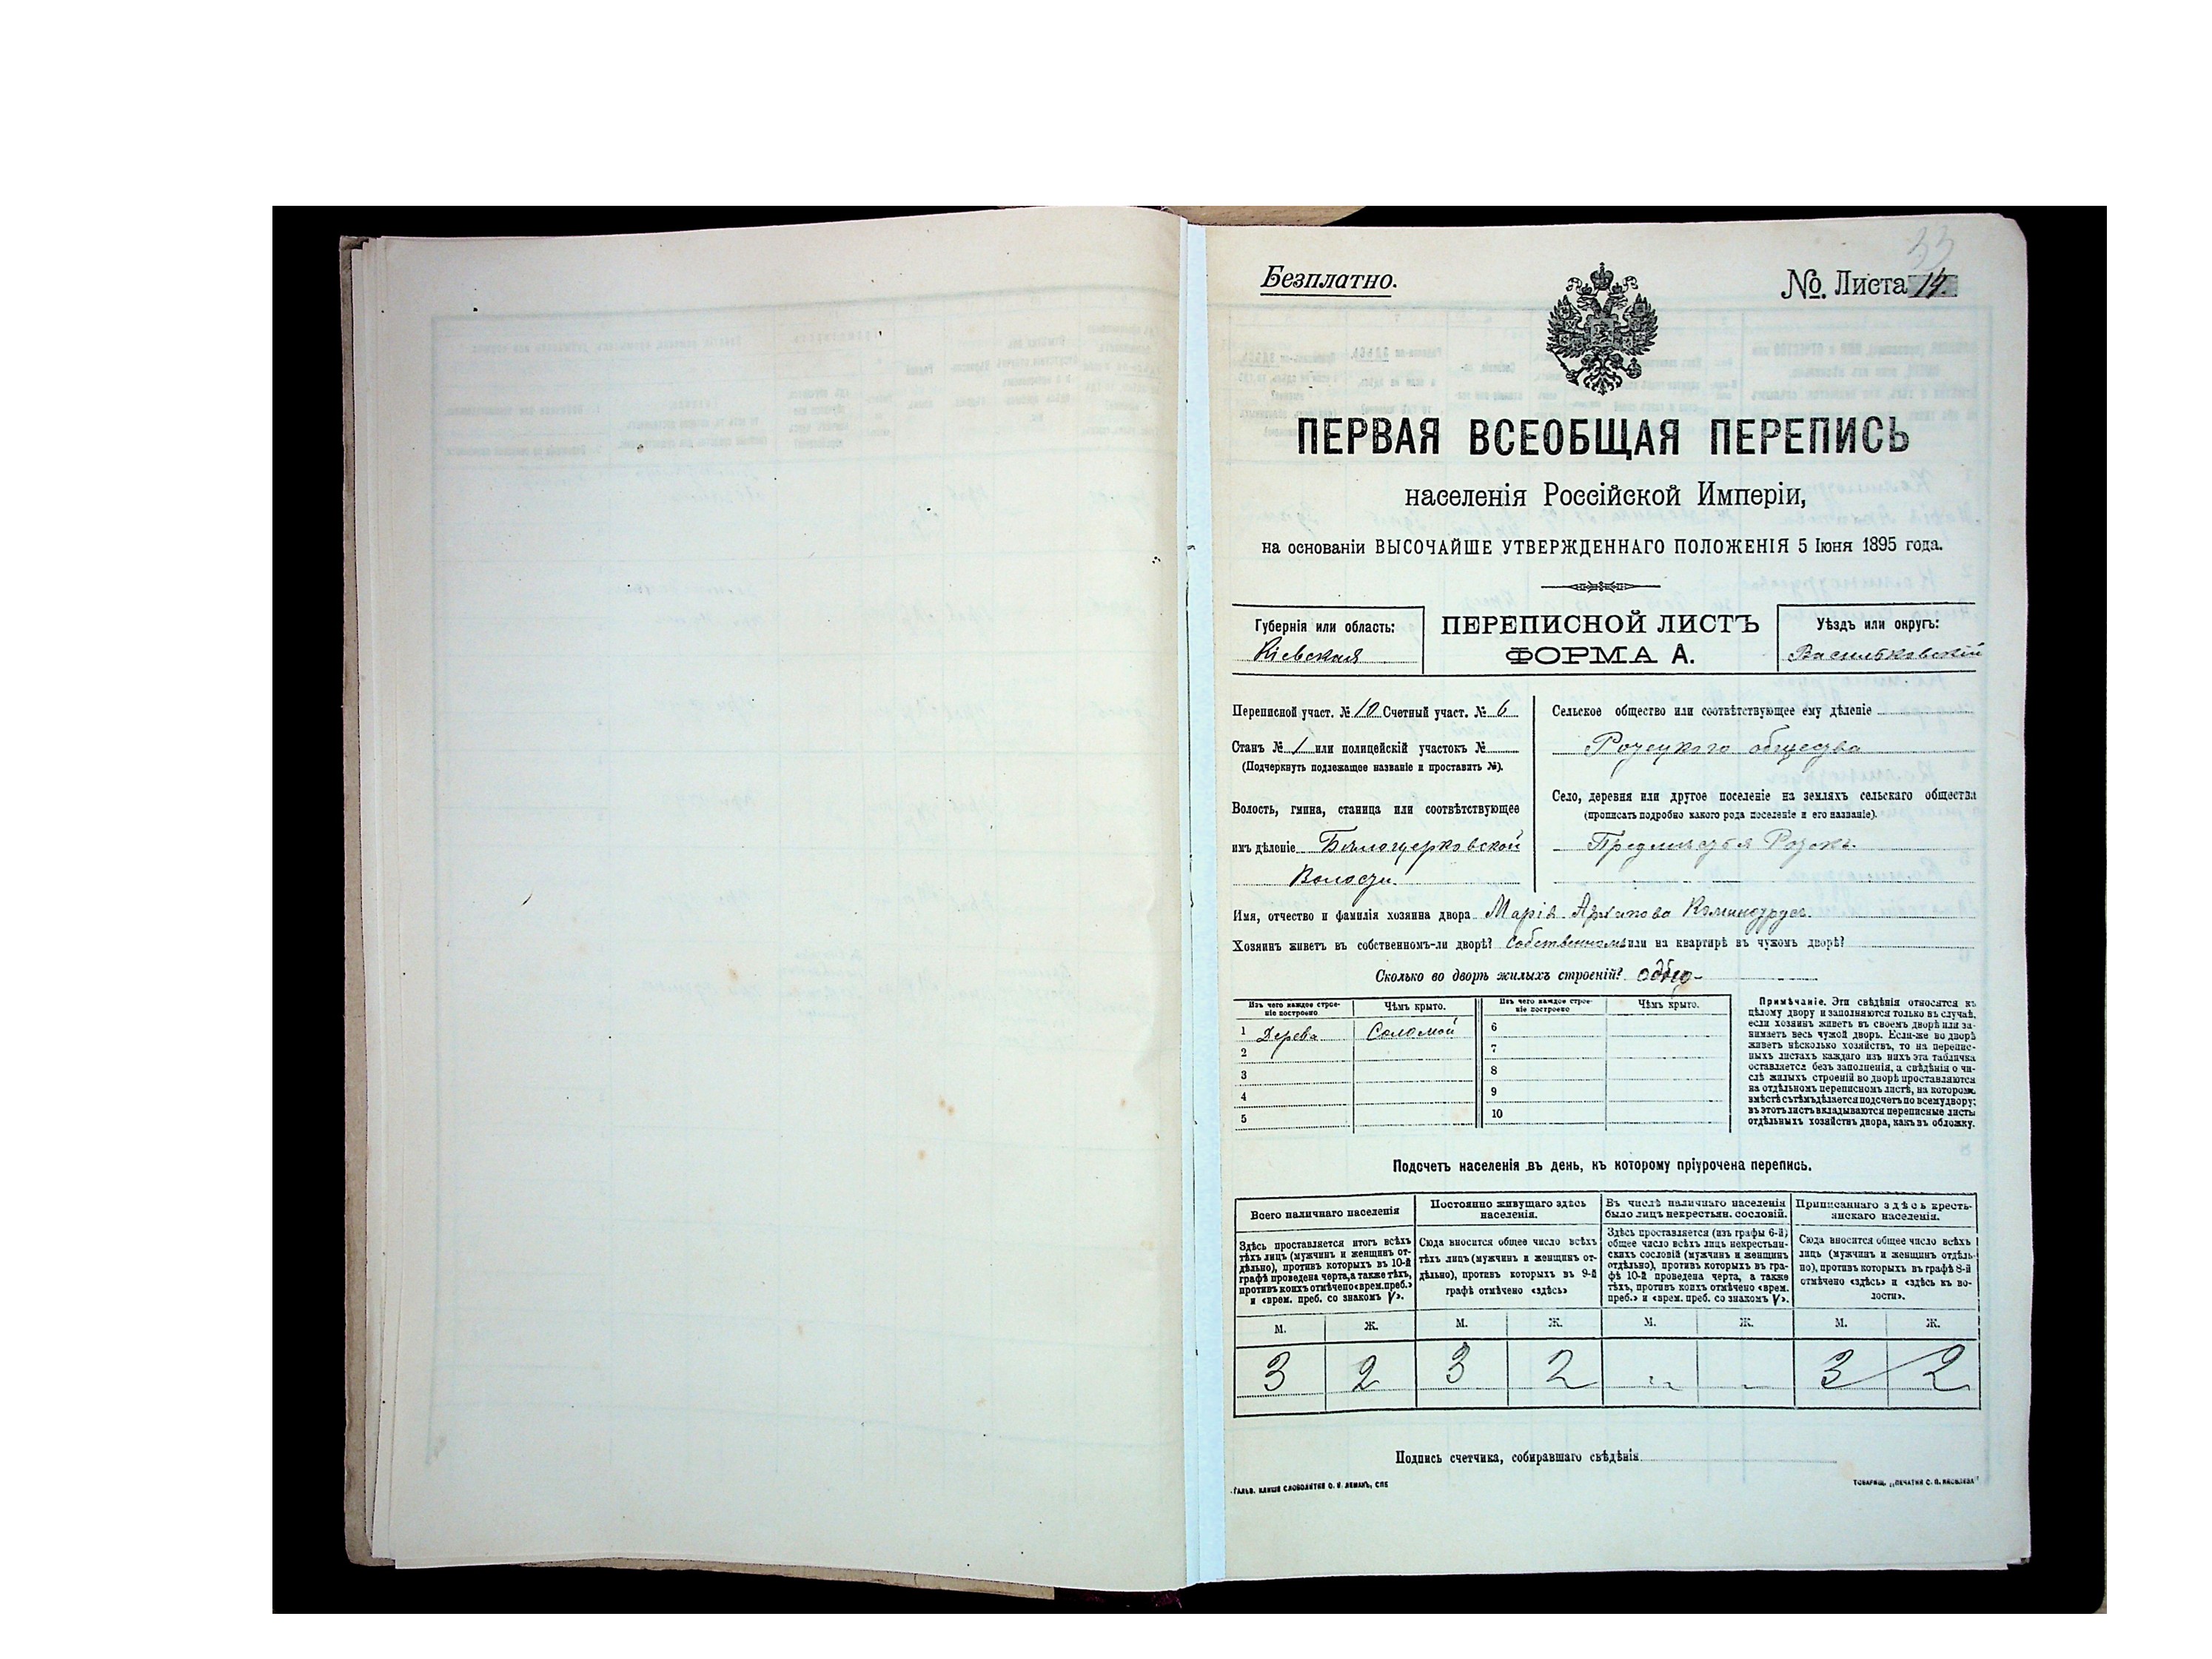 33
Безплатно.
№. Листа 14.
ПЕРВАЯ ВСЕОБЩАЯ ПЕРЕПИСЬ
населенія Россійской Имперіи,
на основаніи ВЫСОЧАЙШЕ УТВЕРЖДЕННАГО ПОЛОЖЕНІЯ 5 Іюня 1895 года.
Губернія или область:
Кіевская
ПЕРЕПИСНОЙ ЛИСТЪ
ФОРМА А.
Уѣздъ или округъ:
Васильковскій
Переписной участ. № 10 Счетный участ. № 6
Станъ № 1 или полицейскій участокъ №
(Подчеркнуть подлежащее названіе и проставить №).
Волость, гмина, станица или соотвѣтствующее
имъ дѣленіе Бѣлоцерковской
Волости.
Сельское общество или соотвѣтствующее ему дѣленіе
общества
Село, деревня или другое поселеніе на земляхъ сельскаго общества
(прописать подробно какого рода поселеніе и его названіе).
Имя, отчество и фамилія хозяина двора Марія
Хозяинъ живетъ въ собственномъ-ли дворѣ? или на квартирѣ въ чужомъ дворѣ?
Сколько во дворѣ жилыхъ строеній?
Изъ чего каждое строе-
ніе построено
Чѣмъ крыто.
Изъ чего каждое строе-
ніе построено
Чѣмъ крыто.
1 Дерева Соломой 6
2 7
3 8
4 9
5 10
Примѣчаніе. Эти свѣдѣнія относятся къ
цѣлому двору и заполняются только въ случаѣ,
если хозяинъ живетъ въ своемъ дворѣ или за-
нимаетъ весь чужой дворъ. Если-же во дворѣ
живетъ нѣсколько хозяйствъ, то на перепис-
ныхъ листахъ каждаго изъ нихъ эта табличка
оставляется безъ заполненія, а свѣдѣнія о чи-
слѣ жилыхъ строеній во дворѣ проставляются
на отдѣльномъ переписномъ листѣ, на которомъ
вмѣстѣ съ тѣмъ дѣлается подсчетъ по всему двору;
въ этотъ листъ вкладываются переписные листы
отдѣльныхъ хозяйствъ двора, какъ въ обложку.
Подсчетъ населенія въ день, къ которому пріурочена перепись.
Всего наличнаго населенія
Здѣсь проставляется итогъ всѣхъ
тѣхъ лицъ (мужчинъ и женщинъ от-
дѣльно), противъ которыхъ въ 10-й
графѣ проведена черта, а также тѣхъ,
противъ коихъ отмѣчено «врем. преб.»
и «врем. преб. со знакомъ V».
Постоянно живущаго здѣсь
населенія.
Сюда вносится общее число всѣхъ
тѣхъ лицъ (мужчинъ и женщинъ от-
дѣльно), противъ которыхъ въ 9-й
графѣ отмѣчено «здѣсь»
Въ числѣ наличнаго населенія
было лицъ некрестьян. сословій.
Здѣсь проставляется (изъ графы 6-й)
общее число всѣхъ лицъ некрестьян-
скихъ сословій (мужчинъ и женщинъ
отдѣльно), противъ которыхъ въ гра-
фѣ 10-й проведена черта, а также
тѣхъ, противъ коихъ отмѣчено «врем.
преб.» и «врем. преб. со знакомъ V».
Приписаннаго здѣсь кресть-
янскаго населенія.
Сюда вносится общее число всѣхъ
лицъ (мужчинъ и женщинъ отдѣль-
но), противъ которыхъ въ графѣ 8-й
отмѣчено «здѣсь» и «здѣсь къ во-
лости».
М. Ж. М. Ж. М. Ж. М. Ж.
3 2 3 2 3 2
Подпись счетчика, собиравшаго свѣдѣнія
ГАЛЬВ. КЛИШЕ СЛОВОЛИТНИ О. И. ЛЕМАНЪ, СПБ
ТОВАРИЩ. „ПЕЧАТНЯ С. П. ЯКОВЛЕВА“